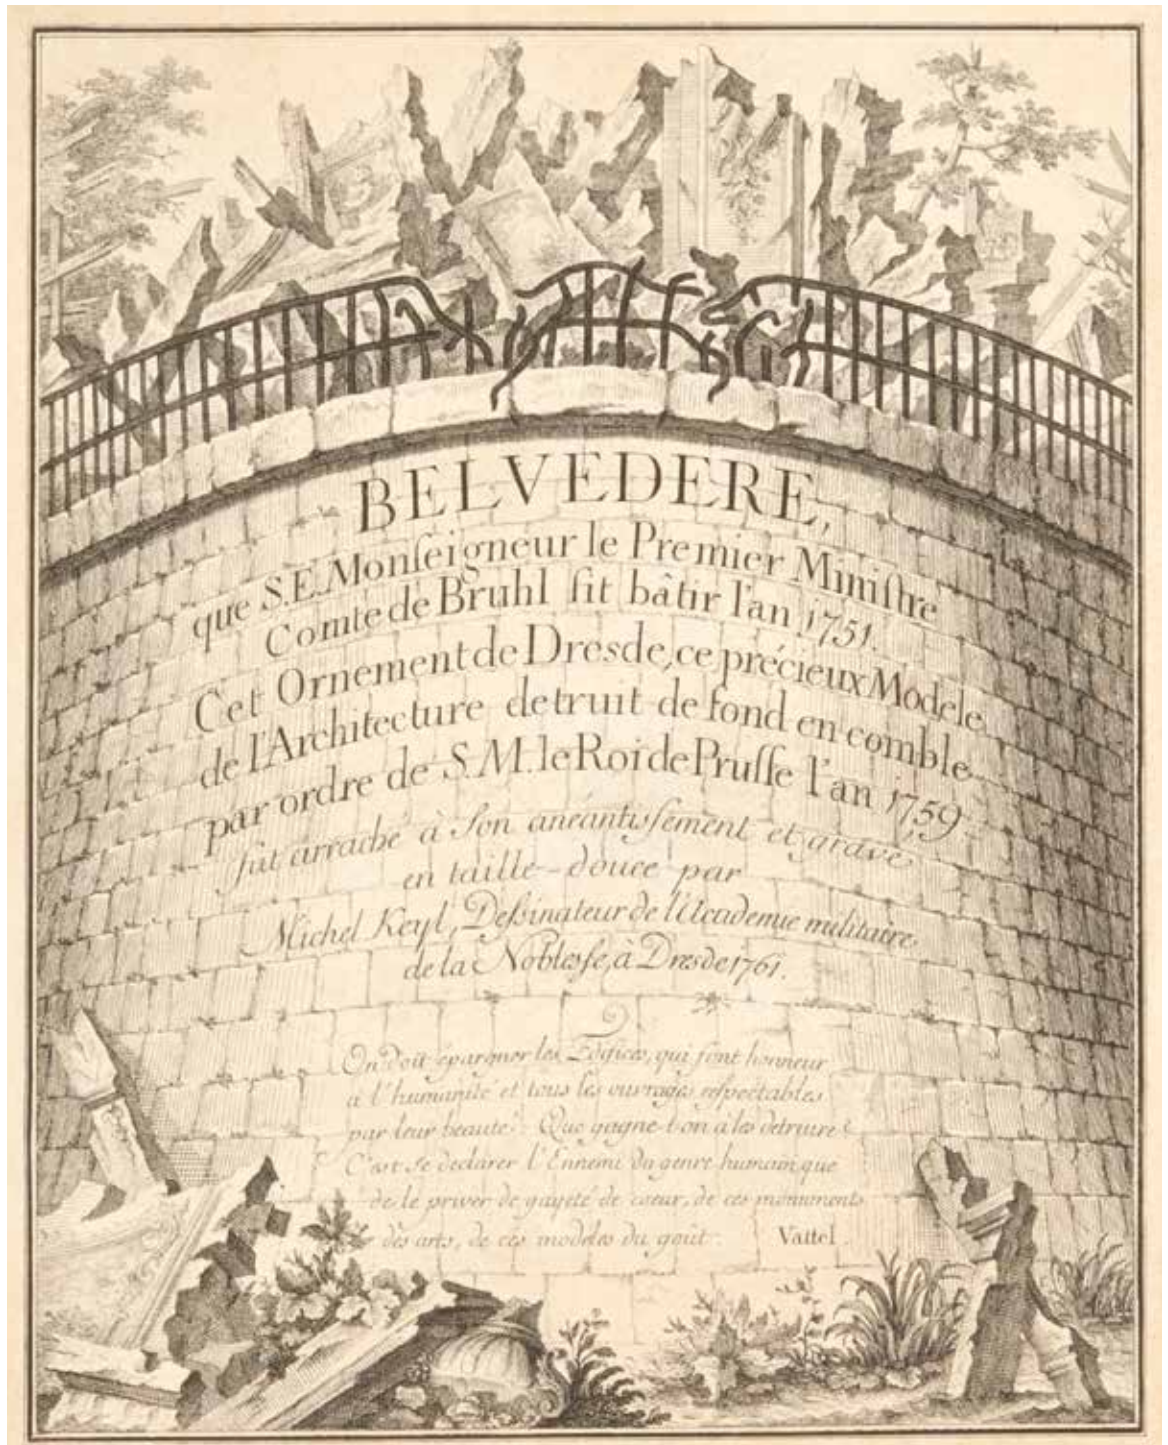 BELVEDERE,
que S.E. Monſeigneur le Premier Miniſtre
Comte de Bruhl fit bâtir l'an 1751.
Cet Ornement de Dresde, ce précieux Modele
de l'Architecture detruit de fond en comble
par ordre de S.M. le Roi de Pruſſe l'an 1759
fut arraché à ſon anéantiſſement et gravé
en taille-douce par
Michel Keyl, Deſsinateur de l'Academie militaire
de la Nobleſse, à Dresde 1761.
On doit épargner les Edifices, qui font honneur
à l'humanité et tous les ouvrages reſpectables
par leur beauté: Que gagne-t-on à les detruire?
C'est se declarer l'Ennemi du genre humain que
de le priver de gayeté de coeur, de ces monuments
des arts, de ces modèles du goût. Vattel.